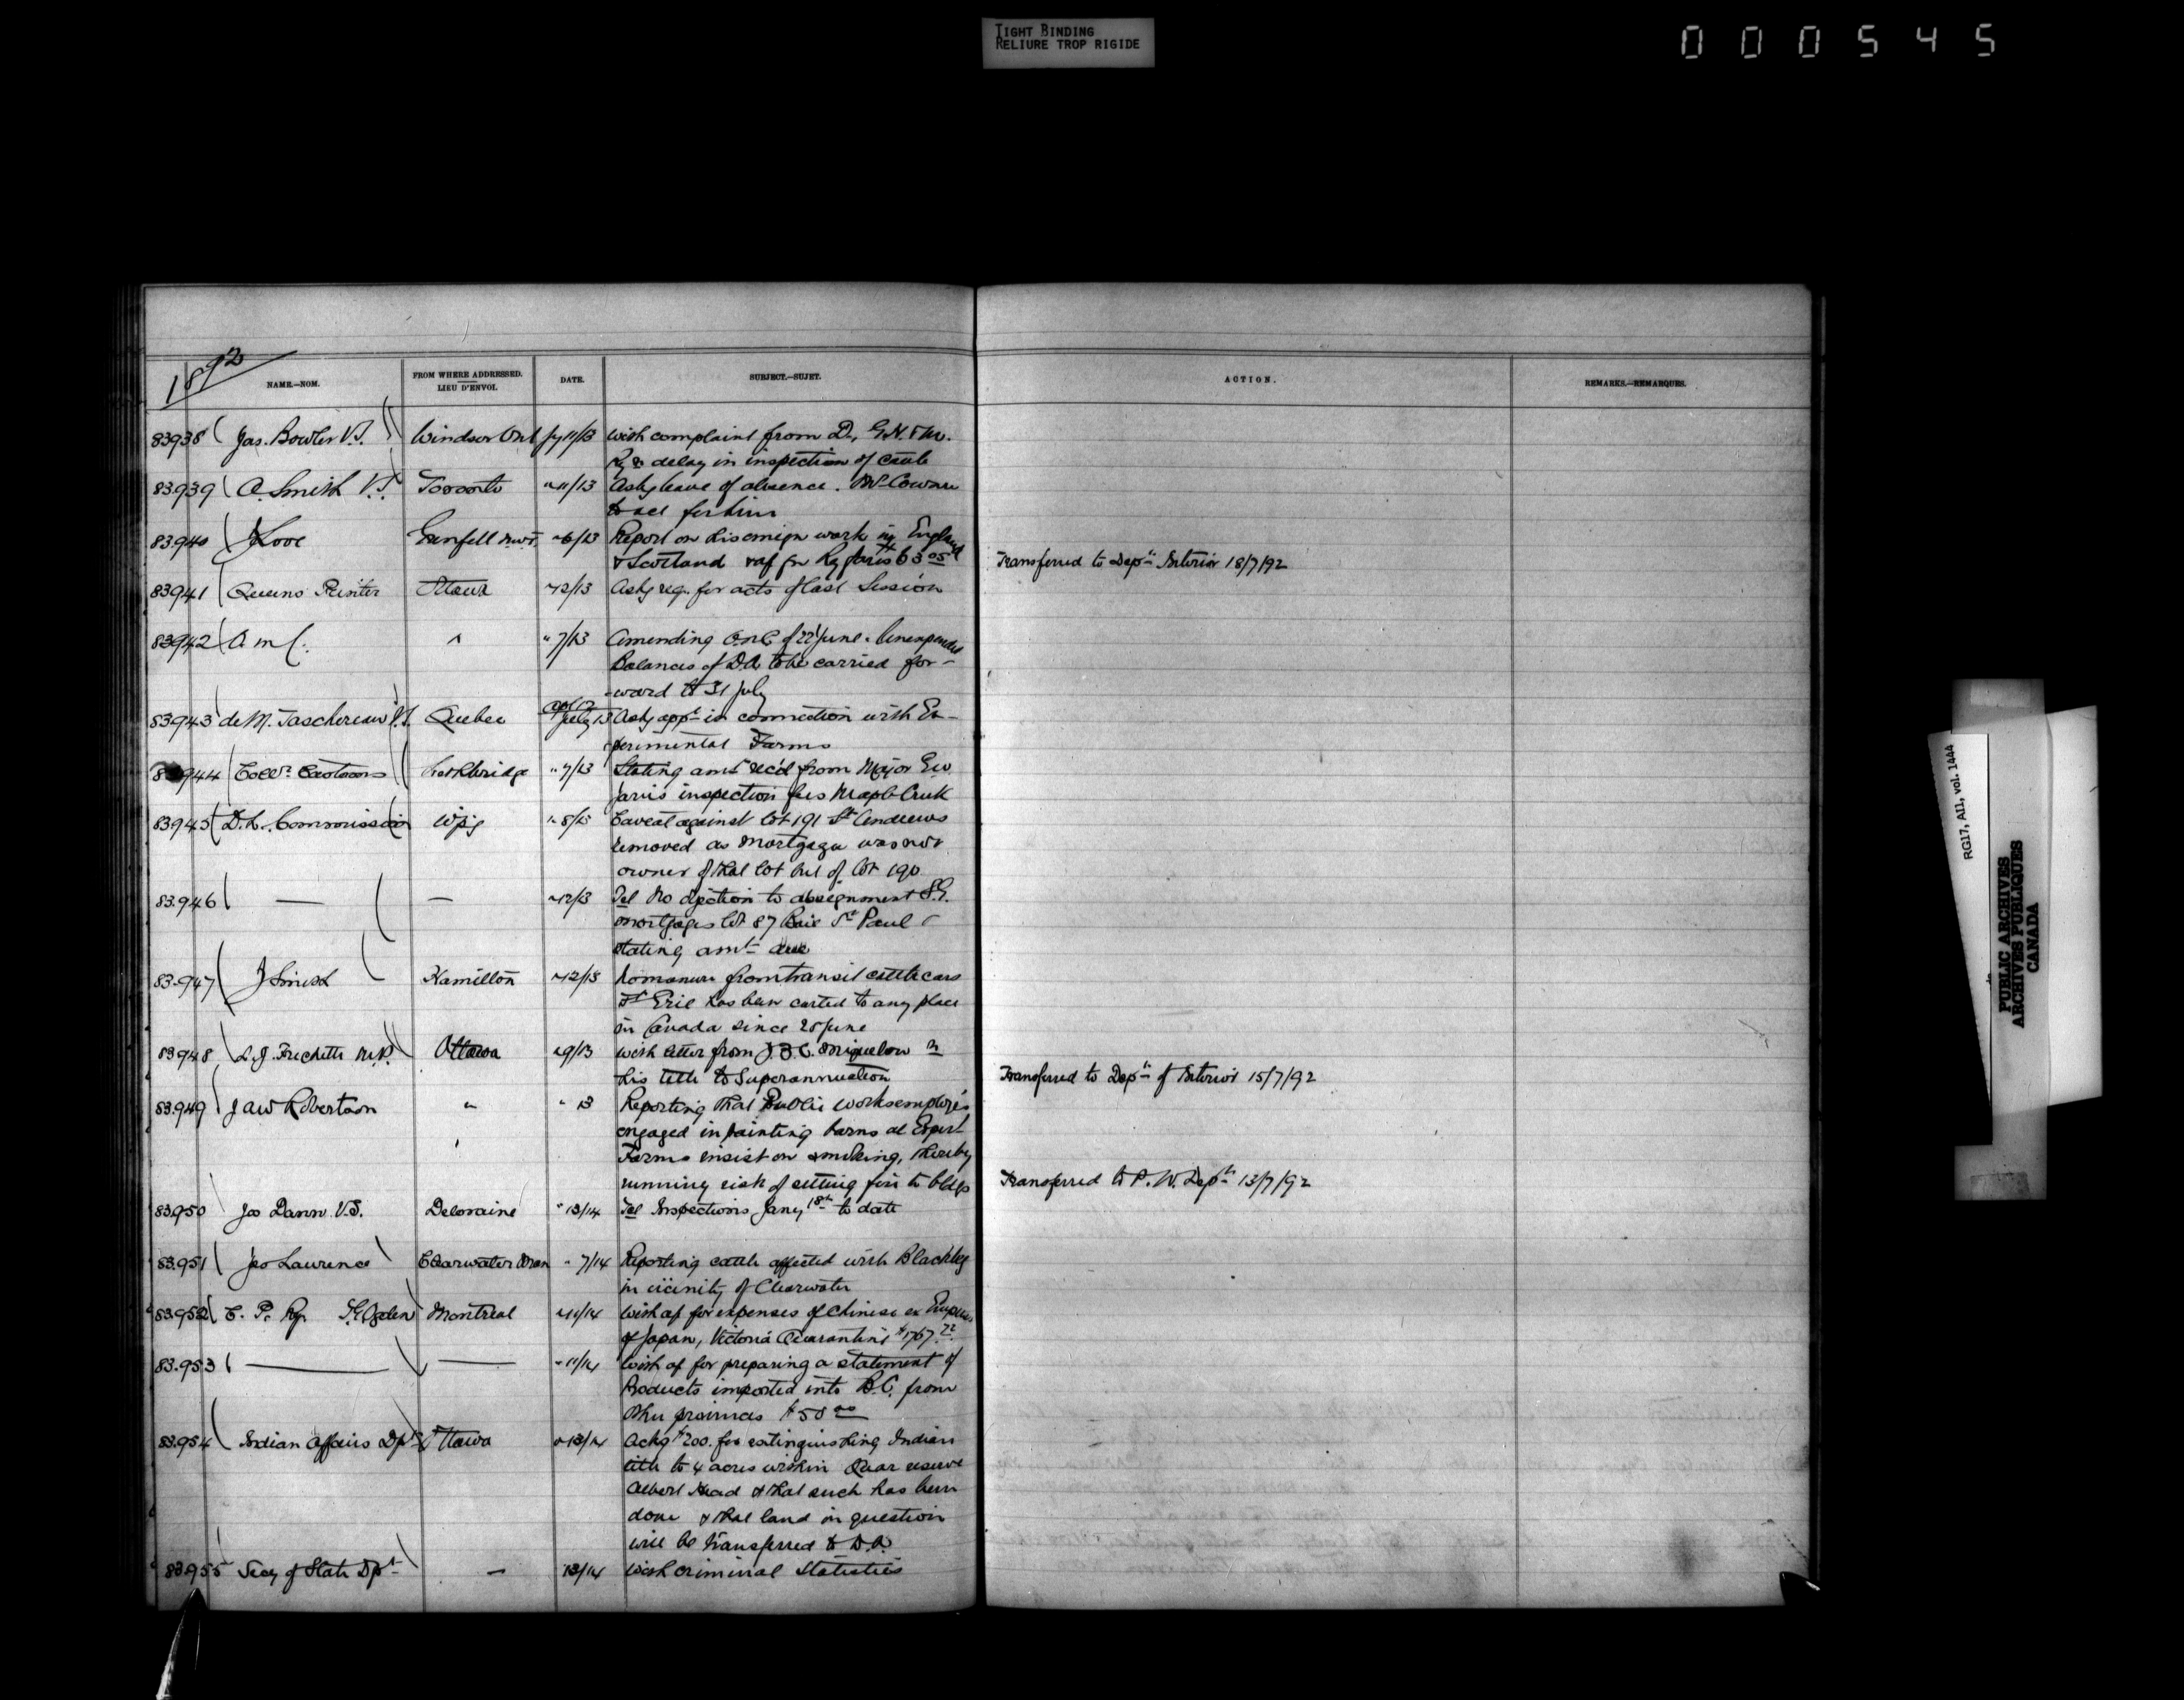 TIGHT BINDING
RELIURE TROP RIGIDE
000545
1892
NAME.—NOM.
FROM WHERE ADDRESSED.
LIEU D'ENVOI.
DATE.
SUBJECT.—SUJET.
ACTION.
REMARKS.—REMARQUES.
83938 Jas. Bowler V.S. Windsor Ont Jy 11/13 With complaint from D. G.H. & M.
Ry delay in inspection of cattle
83939 A. Smith V.S. Toronto " 11/13 Asks leave of absence. Mr Cowan
to act for him
83940 J Love Grenfell N.W.T. " 6/13 Report on his emign work in England
& Scotland
Transferred to Dept Interior 18/7/92
83941 Queens Printer Ottawa " 12/13 Asks req. for acts of last Session
83942 A m C. " " 7/13 Amending O in C of 22 June. Unexpended
Balances of D.A. to be carried for-
ward to 31 July
83943 de M. Taschereau V.S. Quebec July 13 Asks appt in connection with Ex-
perimental Farms
83944 Collr Customs Lethbridge " 7/13 Stating amt rec'd from Major
Jarvis inspection fees Maple Creek
83945 D.L. Commission Wpg " 8/13 Caveat against lot 191 St Andrews
removed as Mortgagee was not
owner of that lot but of lot 190
83.946 — — " 12/13 Tel No objection to assignment S.G.
mortgages lot 87 St Paul
stating amt due
83.947 J Smith Hamilton " 12/13 No manure from transit cattle cars
Ft Erie has been carted to any place
in Canada since 20 June
83.948 L.J. Frechette M.P. Ottawa " 9/13 With letter from J.B.C. Miquelon re
his title to Superannuation
Transferred to Dept of Interior 15/7/92
83.949 J A W Robertson " " 13 Reporting that Public works employés
engaged in painting barns at Expert
Farms insist on smoking, thereby
running risk of setting fire to bldgs
Transferred to P. W. Dept 13/7/92
83.950 Jos Dann V.S. Deloraine " 13/14 Tel Inspections Jany 18th to date
83.951 Jas Lawrence Clearwater Man " 7/14 Reporting cattle affected with Blackleg
in vicinity of Clearwater
83.952 C. P. Ry. Ogden Montreal " 11/14 With a/c for expenses of Chinese ex Empress
of Japan, Victoria Quarantine $1767.72
83.953 — — " 11/14 With a/c for preparing a statement of
Products imported into B.C. from
other provinces $50 00
83.954 Indian Affairs Dpt Ottawa " 13/14 Ackg $200. for extinguishing Indian
title to 4 acres within Quar reserve
Albert Head & that such has been
done & that land in question
will be transferred to D.A.
83.955 Secy of State Dpt — 13/14 With criminal Statistics
RG17, A11, vol. 1444
PUBLIC ARCHIVES
ARCHIVES PUBLIQUES
CANADA